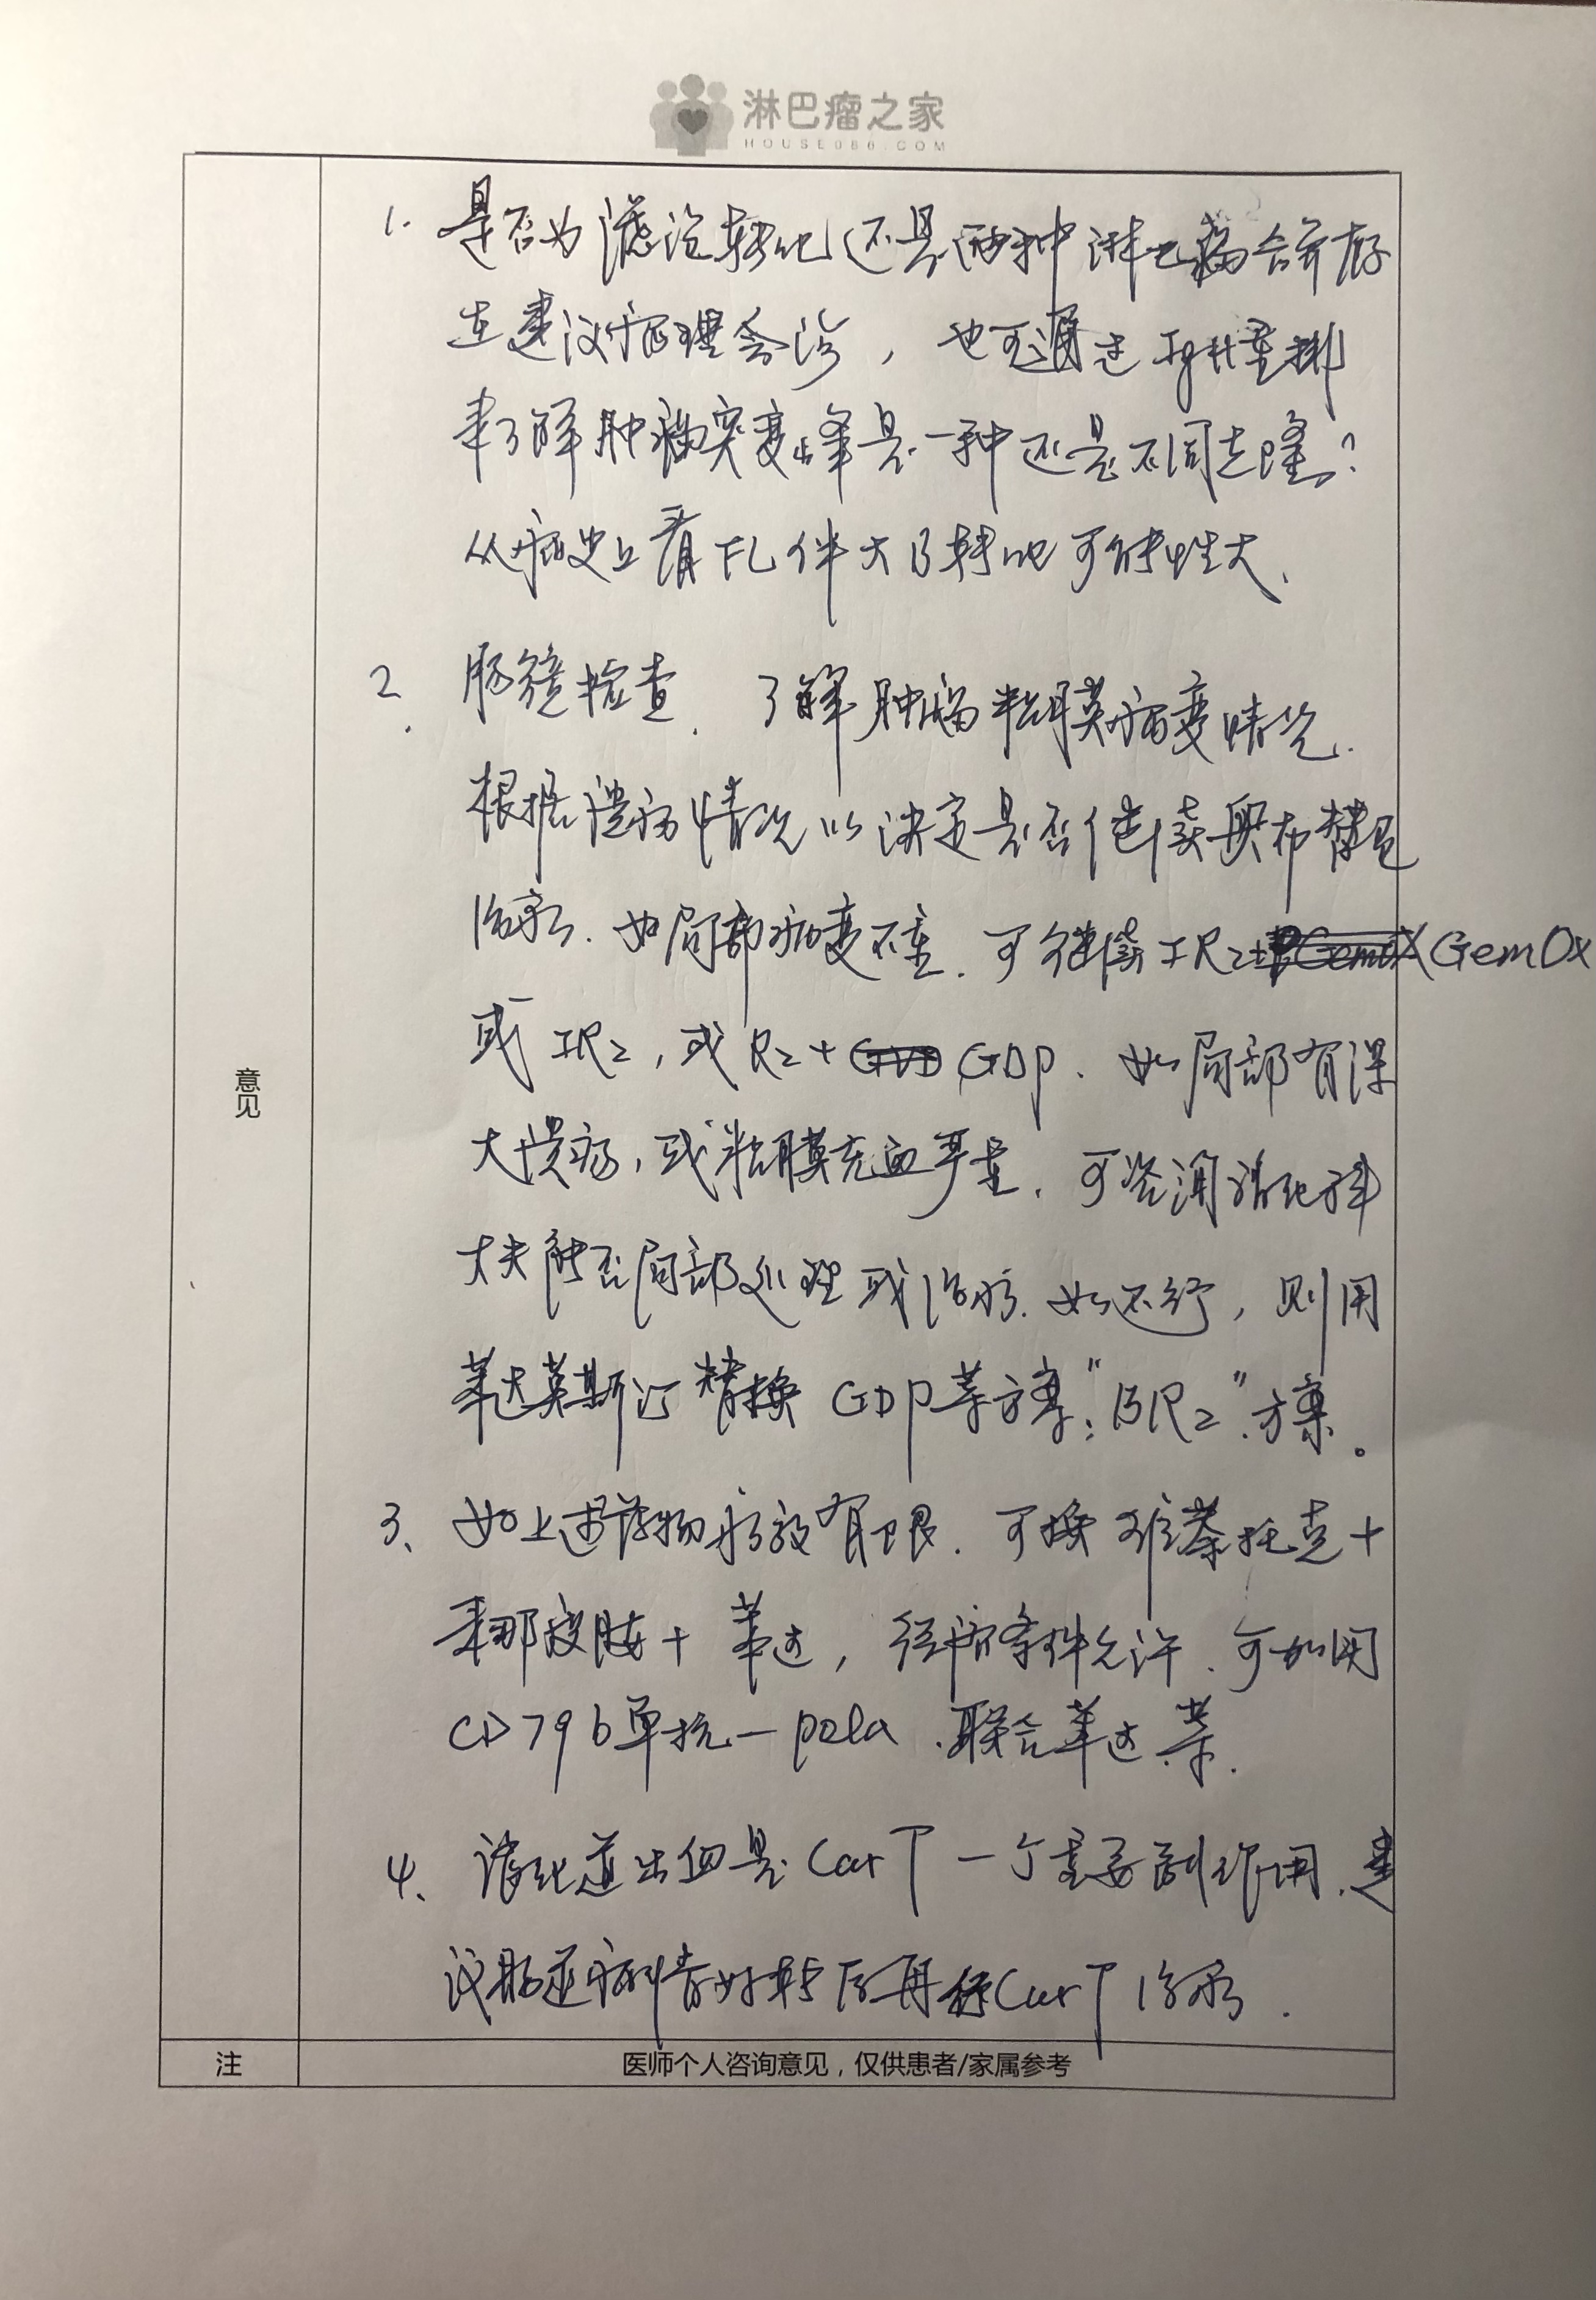 淋巴瘤之家
HOUSE086.COM
1. 是否为滤泡转化还是两种淋巴瘤合并存
在建议病理会诊，也可通过IgH重排
来了解肿瘤突变峰是一种还是不同克隆？
从病史上看FL伴大B转化可能性大、
2、肠镜检查．了解肿瘤粘膜病变情况．
根据溃疡情况以决定是否继续奥布替尼
治疗．如局部病变不重．可继续IR2+GemOx
或IR2，或R2+GDP．如局部有深
大溃疡，或粘膜充血严重．可咨询消化科
大夫能否局部处理或治疗．如还行，则用
苯达莫斯汀替换GDP等方案："BR2"方案。
3、如上述药物疗效有限．可换维奈托克+
来那度胺+苯达，经济条件允许．可加用
CD79b单抗—pola．联合苯达等．
4、消化道出血是CarT一个重要副作用．建
议肠道病情好转后再行CarT治疗．
意见
注 医师个人咨询意见，仅供患者/家属参考